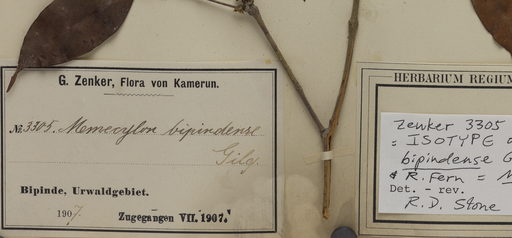 G. Zenker, Flora von Kamerun.
№ 3305. Memecylon bipindense
Gilg.
Bipinde, Urwaldgebiet.
1907.
Zugegangen VII. 1907.
HERBARIUM REGIUM
Zenker 3305
= ISOTYPE
bipindense G
& R. Fern = M
Det. - rev.
R. D. Stone